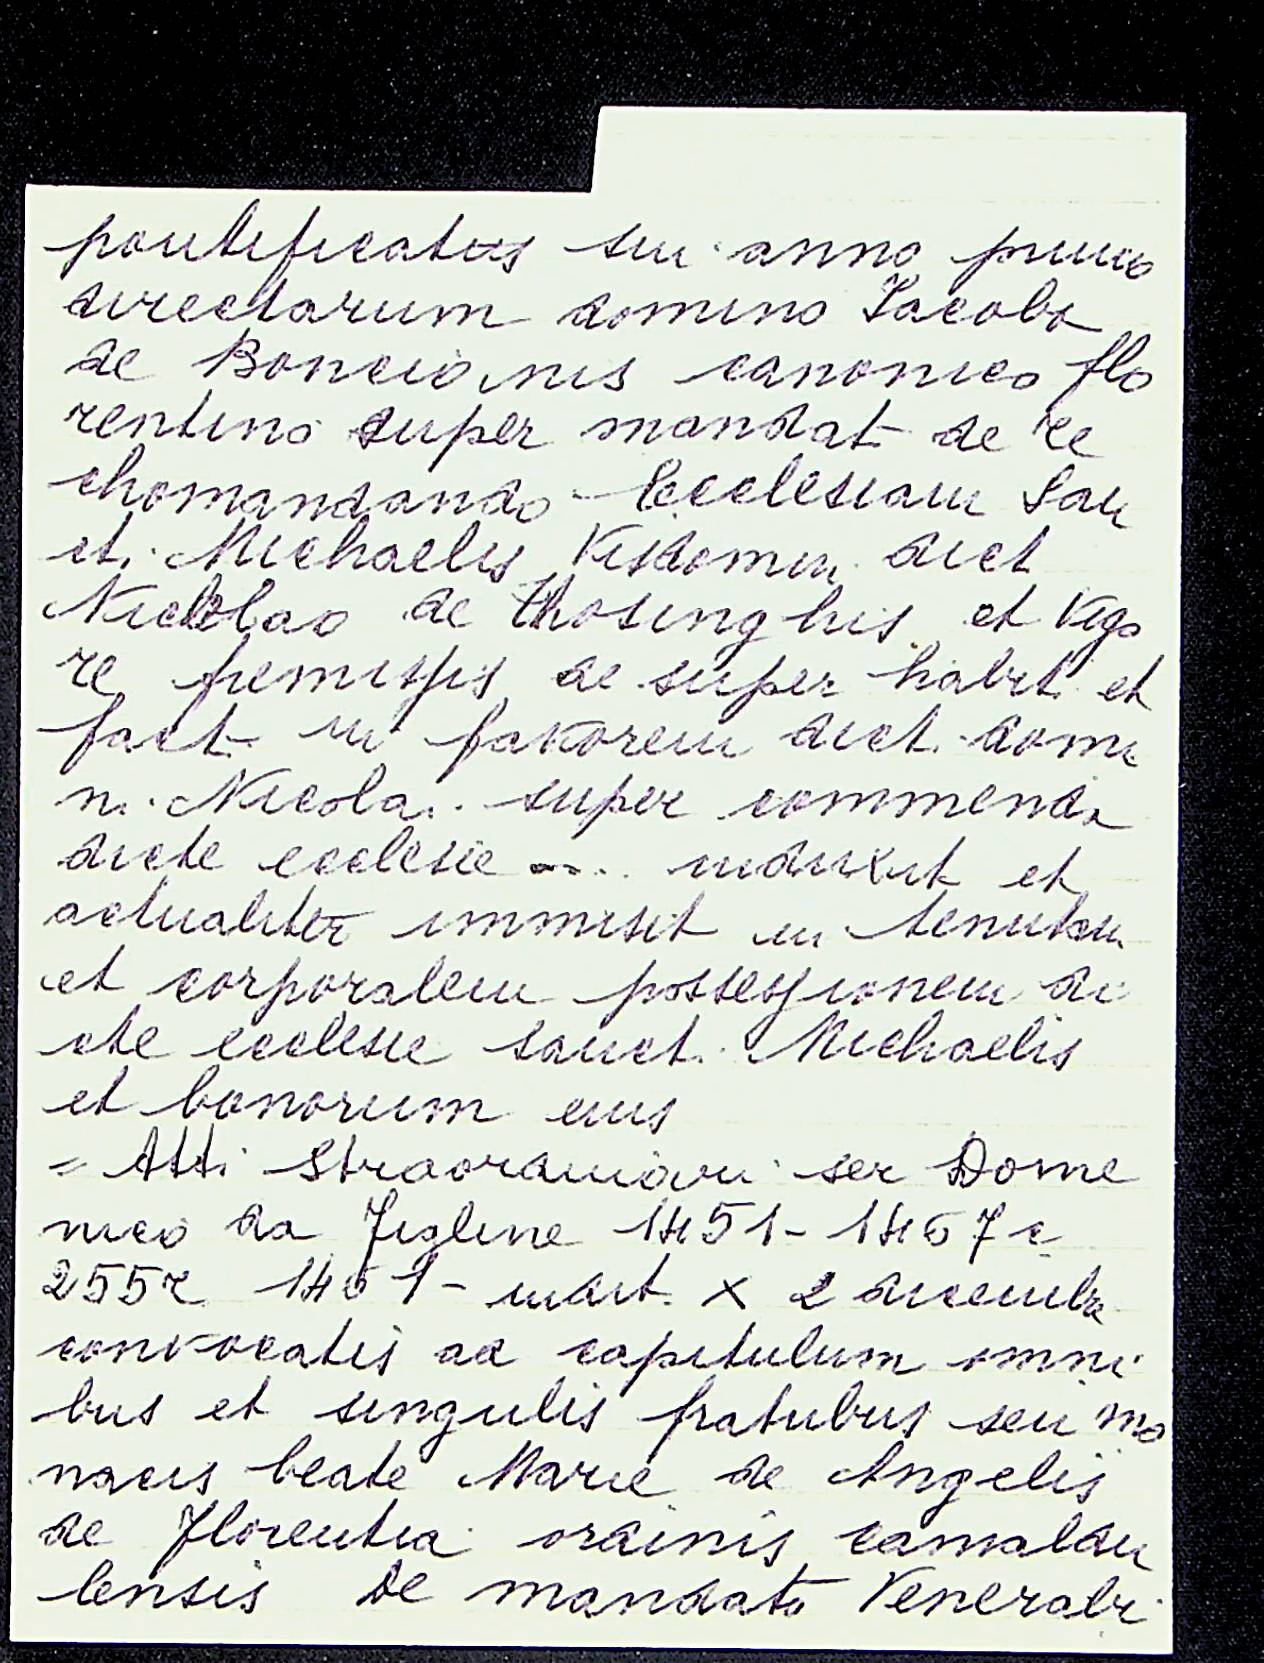 pontificatus sui anno primo
directarum domino Jacobo
de Boncianis canonico flo
rentino super mandat de re
chomandando Ecclesiam San
ct. Michaelis Visdomin. dict
Nicolao de Thosinghis et vigo
re premissis de super habit. et
fact. in favorem dict. domi
ni. Nicolai. super commenda
dicte ecclesie .... induxit et
actualiter immisit in tenutam
et corporalem possessionem di
cte ecclesie sanct. Michaelis
et bonorum eius
= Atti Straordinari ser Dome
nico da Figline 1451-1467 c
255r 1461- indict. X 2 dicembre
convocatis ad capitulum omni
bus et singulis fratribus seu mo
nacis beate Marie de Angelis
de Florentia ordinis camaldu
lensis De mandato Venerabi